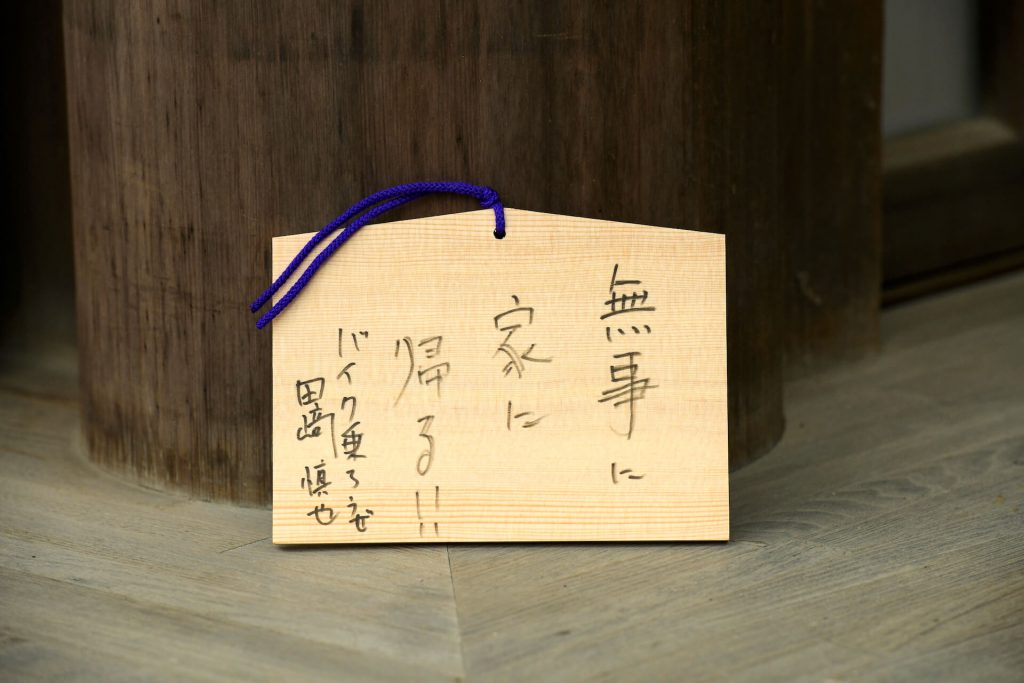 無事に
家に
帰る!!
バイク乗ろうぜ
田崎 慎也